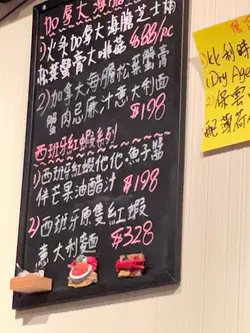 加拿大海膽芝士焗
1)火炙加拿大海膽 $88/pc
松葉蟹膏大啡菇
2)加拿大海膽松葉蟹膏
蟹肉忌廉汁意大利面
$198
西班牙紅蝦系列
1)西班牙紅蝦他他魚子醬
伴芒果油醋汁 $198
2)西班牙原隻紅蝦
意大利麵 $328
1)比利時
(Dry Ag
2)保雲
配薄荷